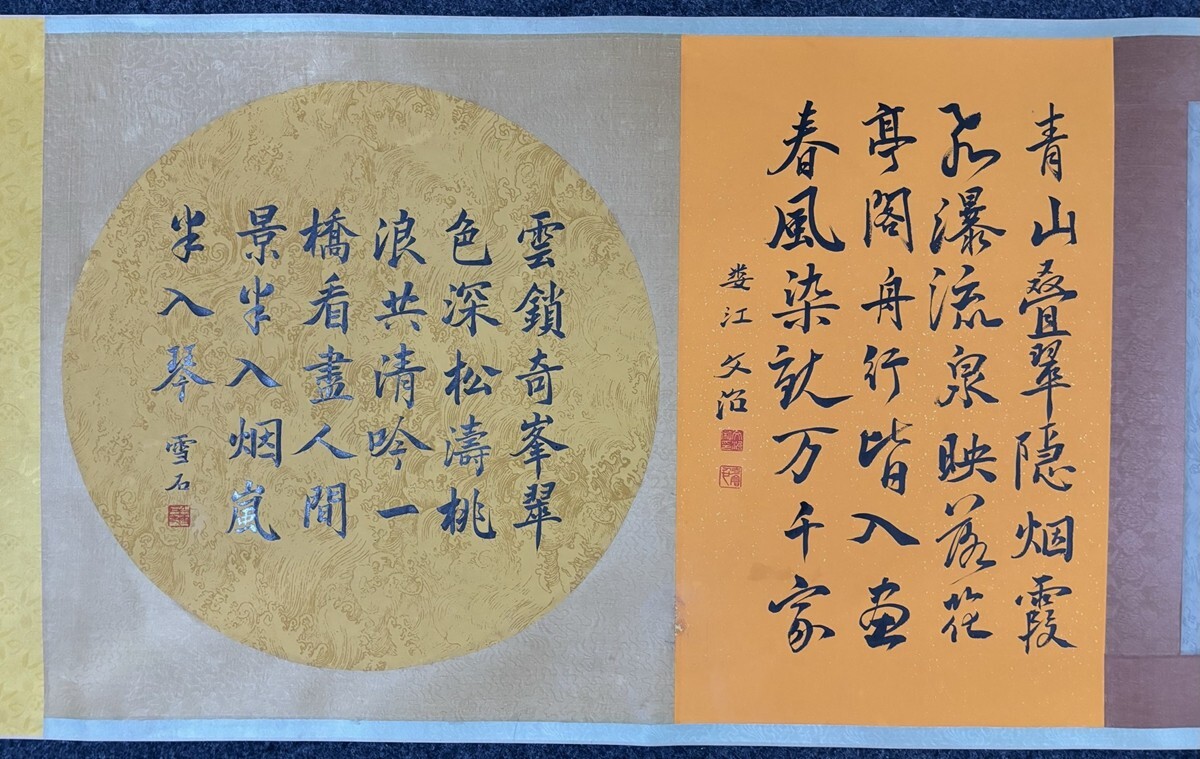 青山叠翠隐烟霞
飛瀑流泉映落花
亭閣舟行皆入画
春風染就万千家
婁江 文治
雲鎖奇峯翠
色深松濤桃
浪共清吟一
橋看盡人間
景半入烟嵐
半入琴
雪石